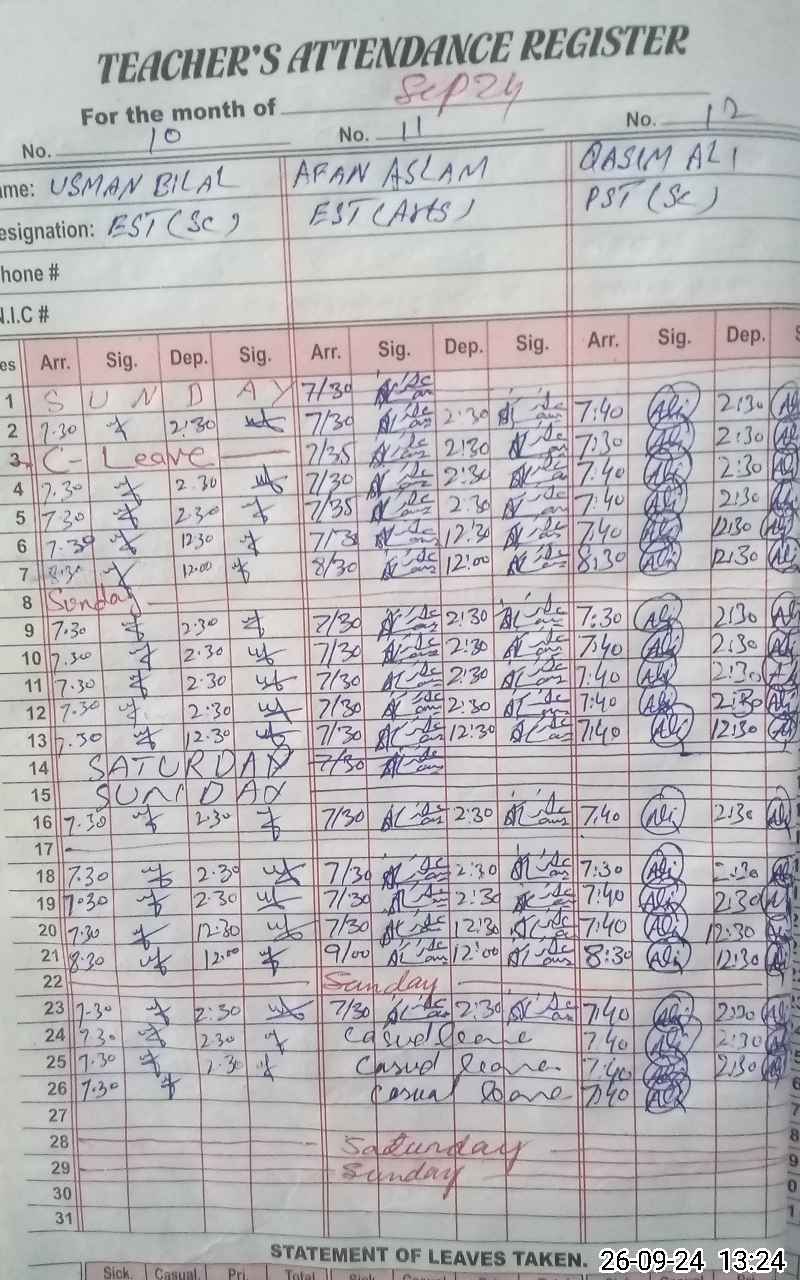 TEACHER'S ATTENDANCE REGISTER
For the month of Sep 24
No. 10 No. 11 No. 12
ame: USMAN BILAL AFAN ASLAM QASIM ALI
esignation: EST (Sc) EST (Arts) PST (Sc)
hone #
N.I.C #
es Arr. Sig. Dep. Sig. Arr. Sig. Dep. Sig. Arr. Sig. Dep. S
1 SUNDAY 7/30
2 7.30 2:30 7/30 2:30 7:40 Ali 2:30 Ali
3 C- Leave 7/35 2:30 7:30 Ali 2:30 Ali
4 7.30 2.30 7/30 2:30 7:40 Ali 2:30 Ali
5 7.30 2.30 7/35 2.30 7:40 Ali 2:30 Ali
6 7.30 12.30 7/30 12.30 7:40 Ali 12:30 Ali
7 8.30 12.00 8/30 12:00 8:30 Ali 12:30 Ali
8 Sunday
9 7.30 2.30 7/30 2:30 7:30 Ali 2:30 Ali
10 7.30 2.30 7/30 2:30 7:40 Ali 2:30 Ali
11 7.30 2.30 7/30 2:30 7:40 Ali 2:30
12 7.30 2:30 7/30 2:30 7:40 Ali 2:30 Ali
13 7.30 12.30 7/30 12:30 7:40 Ali 12:30 Ali
14 SATURDAY 7/30
15 SUNDAY
16 7.30 2.30 7/30 2:30 7:40 Ali 2:30 Ali
17
18 7.30 2.30 7/30 2:30 7:30 Ali 2:30 Ali
19 7.30 2.30 7/30 2:30 7:40 Ali 2:30
20 7.30 12:30 7/30 12:30 7:40 Ali 12:30 Ali
21 8.30 12.00 9/00 12:00 8:30 Ali 12:30 Ali
22 Sunday
23 7.30 2:30 7/30 2:30 7:40 Ali 2:30 Ali
24 7.30 2.30 Casual leave 7:40 Ali 2:30 Ali
25 7.30 2.30 Casual leave 7:40 Ali 2:30 Ali
26 7.30 Casual leave 7:40 Ali
27
28 Saturday
29 Sunday
30
31
STATEMENT OF LEAVES TAKEN.
26-09-24 13:24
Sick. Casual Pri. Total Sick. Casual